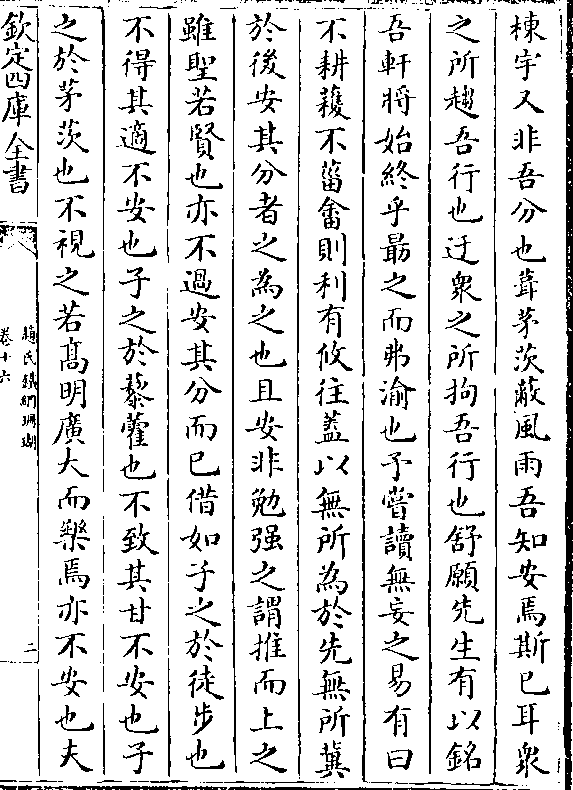 棟宇又非吾分也葺茅茨蔽風雨吾知安焉斯已耳衆
之所趨吾行也迂衆之所拘吾行也舒願先生有以銘
吾軒將始終乎勗之而弗渝也予嘗讀無妄之易有曰
不耕穫不菑畬則利有攸往蓋以無所為於先無所冀
於後安其分者之為之也且安非勉强之謂推而上之
雖聖若賢也亦不過安其分而已借如子之於徒步也
不得其適不安也子之於藜藿也不致其甘不安也子
之於茅茨也不視之若髙明廣大而樂焉亦不安也夫
欽定四庫全書
趙氏鐵網珊瑚
卷十六
二